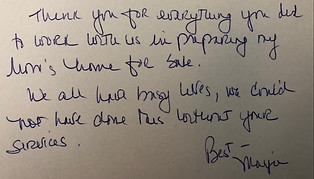 Thank you for everything you did
to work with us in preparing my
Mom's home for sale.
We all have busy lives, we could
not have done this without your
services.
Best -